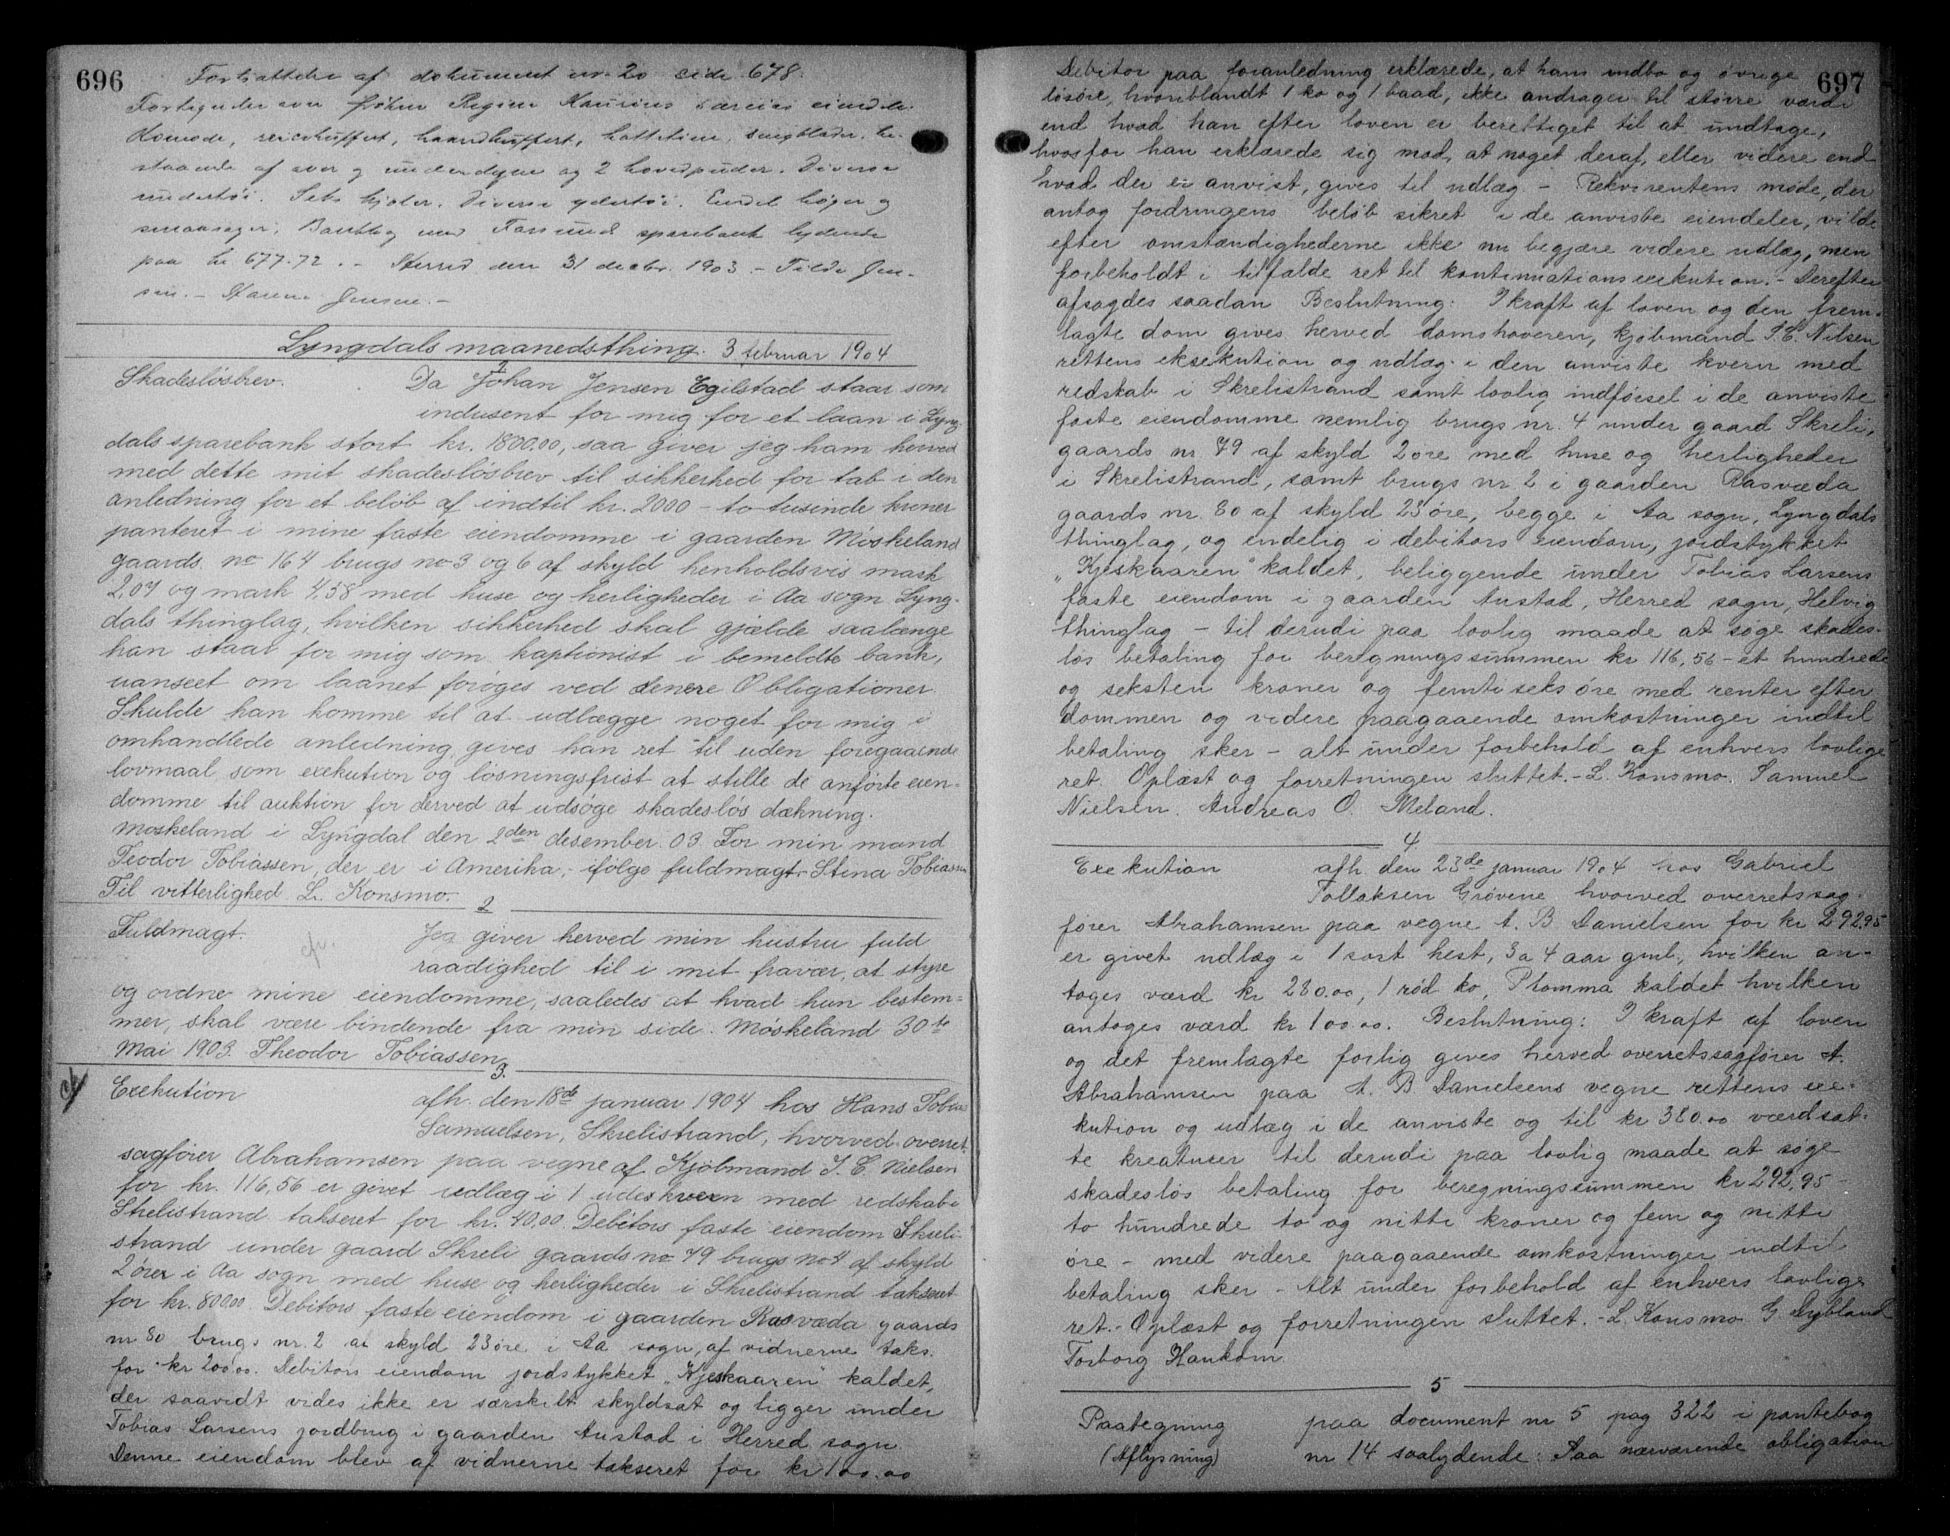 696
Fortsættelse af dokument nr. 20 side 678.
Fortegnelse over frøken Regine særeie eiendele.
Komode, reisekuffert, haandkuffert, hatteline, sengklæder, be-
staaende af over og underdyne og 2 hovedpuder. Diverse
undertøi. Seks kjoler. Diverse ydertøi. Endel bøger og
smaasager. Bankbog med Farsund sparebank lydende
paa kr 677.72. - Herred den 31 decbr. 1903. - Tilda Jen-
sen. - Hanna Jensen. -
Lyngdals maanedsthing. 3 februar 1904
1
Skadesløsbrev. Da Johan Jensen Egilstad staar som
indusent for mig for et laan i Lyng-
dals sparebank stort kr. 1800.00, saa giver jeg ham herved
med dette mit skadesløsbrev til sikkerhed for tab i den
anledning for et beløb af indtil kr. 2000 - to tusinde kroner
panteret i mine faste eiendomme i gaarden Møskeland
gaards no 164 brugs no 3 og 6 af skyld henholdsvis mark
2,07 og mark 4,58 med huse og herligheder i Aa sogn Lyng-
dals thinglag, hvilken sikkerhed skal gjælde saalænge
han staar for mig som kaptionist i bemeldte bank,
uanseet om laanet forøges ved senere Obligationer.
Skulde han komme til at udlægge noget for mig i
omhandlede anledning, gives han ret til uden foregaaende
lovmaal som exekution og løsningsfrist at stille de anførte eien-
domme til auktion for derved at udsøge skadesløs dækning.
Møskeland i Lyngdal den 2den desember 03. For min mand
Teodor Tobiassen, der er i Amerika, - ifølge fuldmagt - Stina Tobiassen
Til vitterlighed L. Konsmo.
2
Fuldmagt. cfr. Jeg giver herved min hustru fuld
raadighed til i mit fravær, at styre
og ordne mine eiendomme, saaledes at hvad hun bestem-
mer, skal være bindende fra min side. Møskeland 30te
Mai 1903. Theodor Tobiassen
3.
cfr Exekution afh. den 18de januar 1904 hos Hans Tobias
Samuelsen, Skrelistrand, hvorved overret-
sagfører Abrahamsen paa vegne af Kjøbmand I. C. Nielsen
for kr. 116,56 er givet udlæg i 1 udeskvern med redskab i
Skrelistrand takseret for kr. 40.00. Debitors faste eiendom Skreli-
strand under gaard Skreli gaards no 79 brugs no 4 af skyld
2 ører i Aa sogn med huse og herligheder i Skrelistrand takseret
for kr. 800.00. Debitors faste eiendom i gaarden Rasvæda gaards
nr 80 brugs nr. 2 af skyld 23 øre i Aa sogn, af vidnerne taks.
for kr 200.00. Debitors eiendom jordstykket „Kjeskaaren" kaldet,
der saavidt vides ikke er særskilt skyldsat og ligger under
Tobias Larsens jordbrug i gaarden Austad i Herred sogn.
Denne eiendom blev af vidnerne takseret for kr 100.00
697
Debitor paa foranledning erklærede, at hans indbo og øvrige
løsøre, hvoriblandt 1 ko og 1 baad, ikke andrager til større værdi
end hvad han efter loven er berettiget til at undtage,
hvorfor han erklærede sig mod, at noget deraf, eller videre end
hvad der er anvist, gives til udlæg - Rekvirentens møde, der
antog fordringens beløb sikret i de anviste eiendeler, vilde
efter omstændighederne ikke nu begjære videre udlæg, men
forbeholdt i tilfælde ret til kontinuationsexekution. - Derefter
afsagdes saadan Beslutning: I kraft af loven og den frem-
lagte dom gives herved domshaveren, kjøbmand I. C. Nilsen
rettens eksekution og udlæg i den anviste kvern med
redskab i Skrelistrand samt lovlig indførsel i de anviste
faste eiendomme nemlig brugs nr. 4 under gaard Skreli,
gaards nr. 79 af skyld 2 øre med huse og herligheder
i Skrelistrand, samt brugs nr 2 i gaarden Rasvæda
gaards nr. 80 af skyld 23 øre, begge i Aa sogn, Lyngdals
thinglag, og endelig i debitors eiendom, jordstykket
„Kjeskaaren" kaldet, beliggende under Tobias Larsens
faste eiendom i gaarden Austad, Herred sogn, Helvig
thinglag - til derudi paa lovlig maade at søge skades-
løs betaling for beregningssummen kr 116,56 - et hundrede
og seksten kroner og femti seks øre med renter efter
dommen og videre paagaaende omkostninger indtil
betaling sker - alt under forbehold af enhvers lovlige
ret. Oplæst og forretningen sluttet. - L. Konsmo. Samuel
Nielsen. Andreas O. Meland.
4
Exekution afh den 23de januar 1904 hos Gabriel
Tollaksen Grøvene hvorved overretssag-
fører Abrahamsen paa vegne A. B Danielsen for kr 292,95
er givet udlæg i 1 sort hest, 3 a 4 aar gml, hvilken an-
tages værd kr 280.00, 1 rød ko, Plomma kaldet hvilken
antages værd kr 100.00. Beslutning: I kraft af loven
og det fremlagte forlig gives herved overretssagfører A.
Abrahamsen paa A. B Danielsens vegne rettens exe-
kution og udlæg i de anviste og til kr 380.00 værdsat-
te kreaturer til derudi paa lovlig maade at søge
skadesløs betaling for beregningssummen kr 292,95 -
to hundrede to og nitti kroner og fem og nitti
øre - med videre paagaaende omkostninger indtil
betaling sker - Alt under forbehold af enhvers lovlige
ret. - Oplæst og forretningen sluttet. - L. Konsmo G Dybland
Torborg Haukom
5
Paategning paa document nr 5 pag 322 i pantebog
(Aflysning) nr 14 saalydende: Paa nærværende obligation